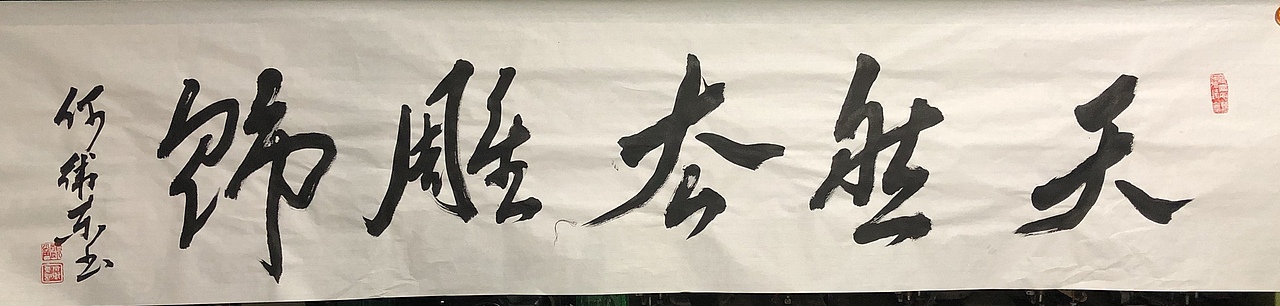 天然去雕饰
何卫东书